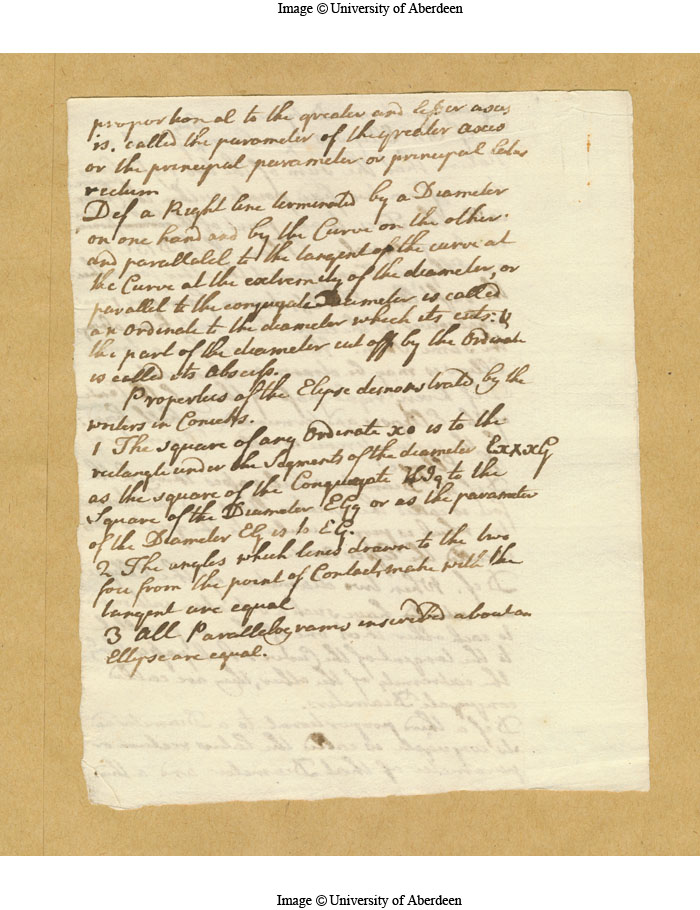 Image © University of Aberdeen
proportional to the greater and lesser axes
is. called the parameter of the greater axes
or the principal parameter or principal latus
rectum
Def a Right line terminated by a Diameter
on one hand and by the Curve on the other.
and parallalel to the tangent of the curve at
the Curve at the extremity of the diameter, or
parallel to the conjugate Diameter is called
an Ordinate to the diameter which its cuts: &
the part of the diameter cut off by the Ordinate
is called its absciss.
Properties of the Elipse demonstrated by the
writers in Conicks.
1 The square of any Ordinate xo is to the
rectangle under the Segments of the diameter ExxxG
as the square of the Conjugate to the
Square of the Diameter EGq or as the parameter
of the Diameter EG is to EG.
2 The angles which lines drawn to the two
foci from the point of Contact, make with the
tangent are equal
3 All Parallelograms inscribed about an
Ellipse are equal.
Image © University of Aberdeen